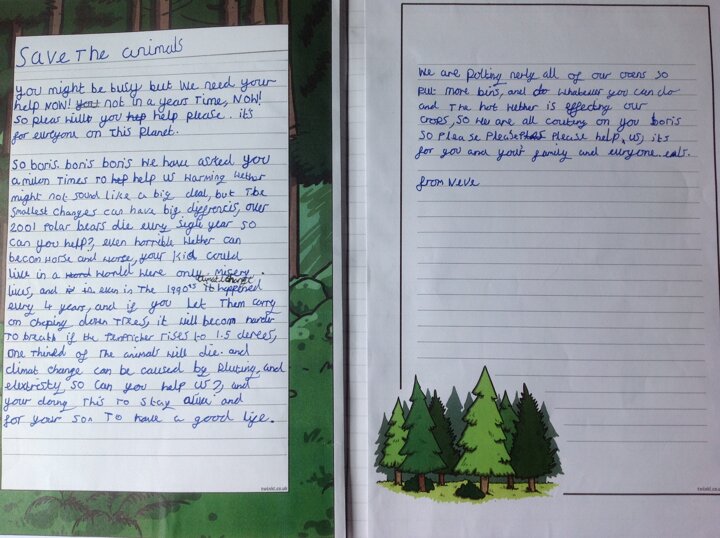 Save The animals
you might be busy but We need your
help NOW! not in a years Time, NOW!
So pleas will you help please. it's
for everyone on This Planet.
So boris boris boris We have asted you
a milon Times To help us Warming Wether
might not sound like a big deal, but The
Smallest changes can have big differencis, over
2001 Polar bears die evry Sigle year so
Can you help?, even horrible Wether can
becom worse and worse, your kid could
live in a World Were only misery
lives, and in even in The 1990s it happened
climat change
evry 4 years, and if you let Them carry
on choping down Trees, it will becom harder
To breath if the Tempricher rises to 1.5 derees,
one Thired of The animals Will die. and
climat change can be caused by Pluting, and
elextresty so can you help us?, and
your doing This To Stay alive and
for your son To have a good life.
twinkl.co.uk
We are Polting nerly all of our ocens so
Put more bins, and do whatever you can do
and The hot Wether is effecting our
crops, so We are all couting on you boris
So Please Please Please help us, it's
for you and your family and evryone eals.
from Neve